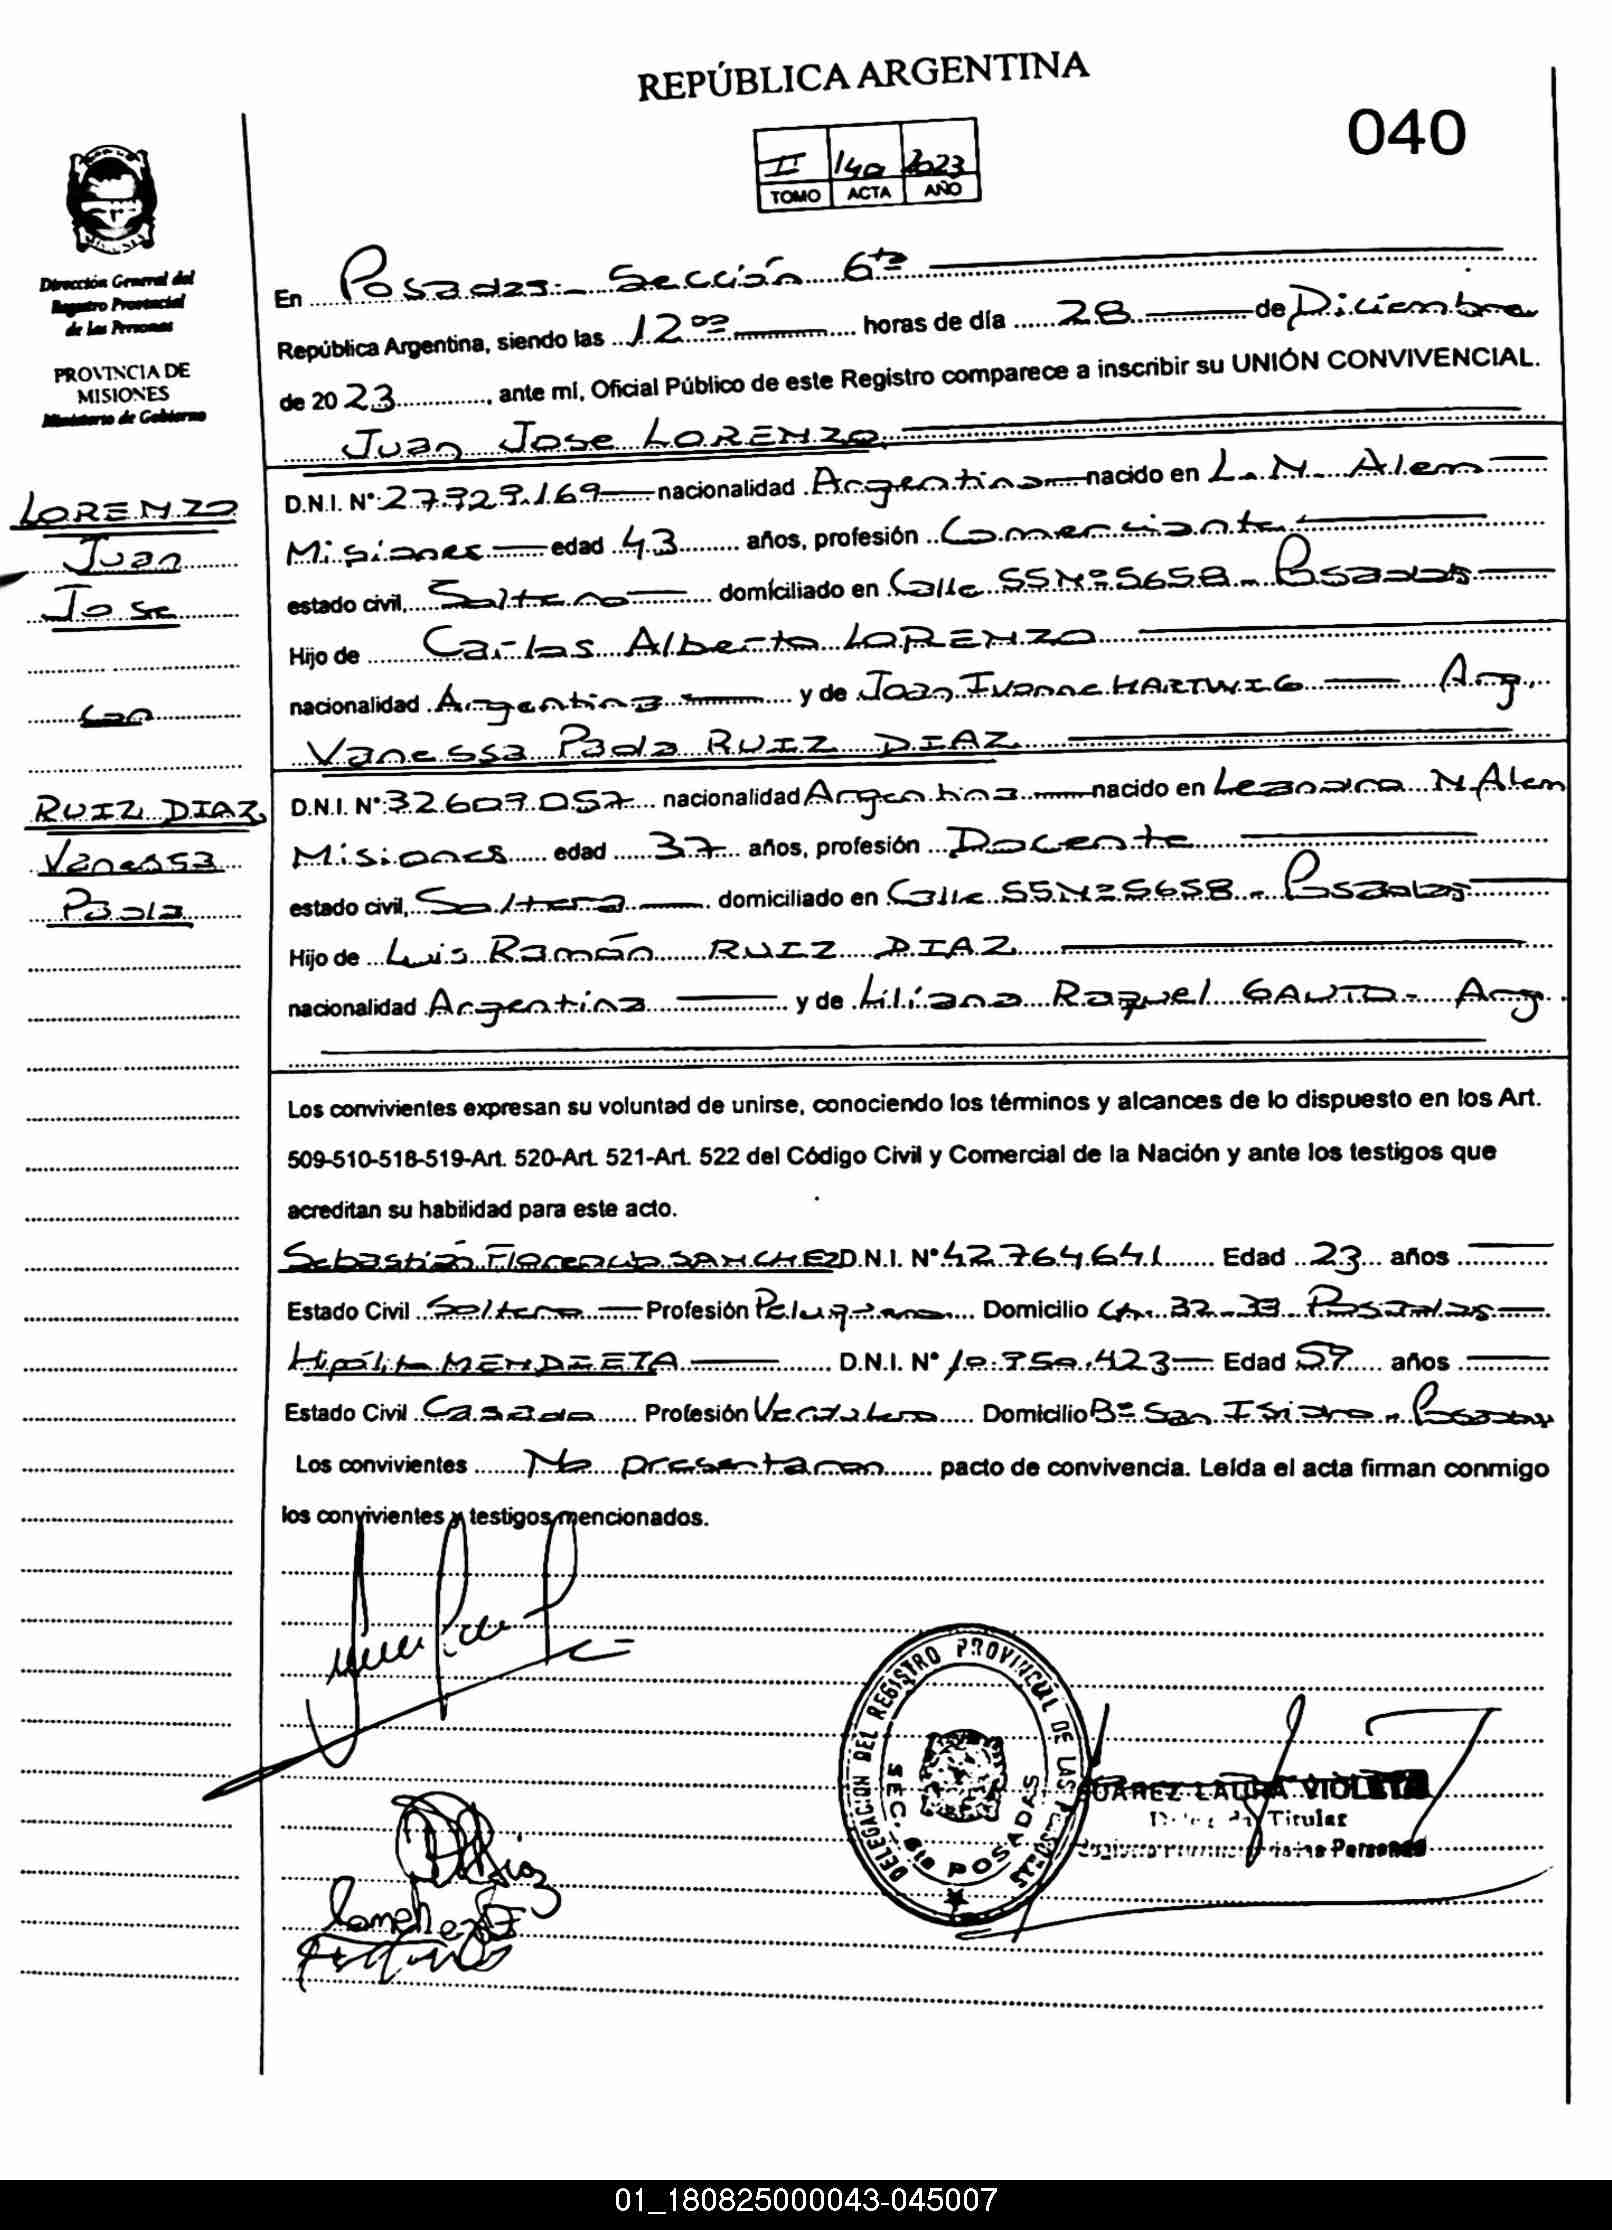 REPÚBLICA ARGENTINA
040
II 140 2023
TOMO ACTA AÑO
Dirección General del
Registro Provincial
de las Personas
PROVINCIA DE
MISIONES
Ministerio de Gobierno
LORENZO
Juan
Jose
con
RUIZ DIAZ
Vanessa
Paola
En Posadas - Sección 6ta
República Argentina, siendo las 12 00 horas de día 28 de Diciembre
de 2023, ante mí, Oficial Público de este Registro comparece a inscribir su UNIÓN CONVIVENCIAL.
Juan Jose LORENZO
D.N.I. N° nacionalidad Argentina nacido en L. N. Alem
Misiones edad 43 años, profesión Comerciante
estado civil, Soltero domiciliado en Calle SSNº5658 - Posadas
Hijo de Carlos Alberto LORENZO
nacionalidad Argentina y de Joan Ivonne HARTWIG Arg.
Vanessa Paola RUIZ DIAZ
D.N.I. N° 32.609.057 nacionalidad Argentina nacido en Leandro N. Alem
Misiones edad 37 años, profesión Docente
estado civil, Soltera domiciliado en Calle SSNº5658 - Posadas
Hijo de Luis Ramón RUIZ DIAZ
nacionalidad Argentina y de Liliana Raquel GAUTO - Arg.
Los convivientes expresan su voluntad de unirse, conociendo los términos y alcances de lo dispuesto en los Art.
509-510-518-519-Art. 520-Art. 521-Art. 522 del Código Civil y Comercial de la Nación y ante los testigos que
acreditan su habilidad para este acto.
Sebastián Florencio SANCHEZ D.N.I. N° 42.764.641 Edad 23 años
Estado Civil Soltero Profesión Peluquero Domicilio Ch. 32-33 Posadas
Hipólito MENDIETA D.N.I. N° Edad 59 años
Estado Civil Casado Profesión Verdulero Domicilio Bº San Isidro - Posadas
Los convivientes No presentaron pacto de convivencia. Leída el acta firman conmigo
los convivientes y testigos mencionados.
DELEGACION DEL REGISTRO PROVINCIAL DE LAS PERSONAS
SEC. 6ta POSADAS
LAURA VIOLETA
Titular
Personas
Sanchez
01_180825000043-045007